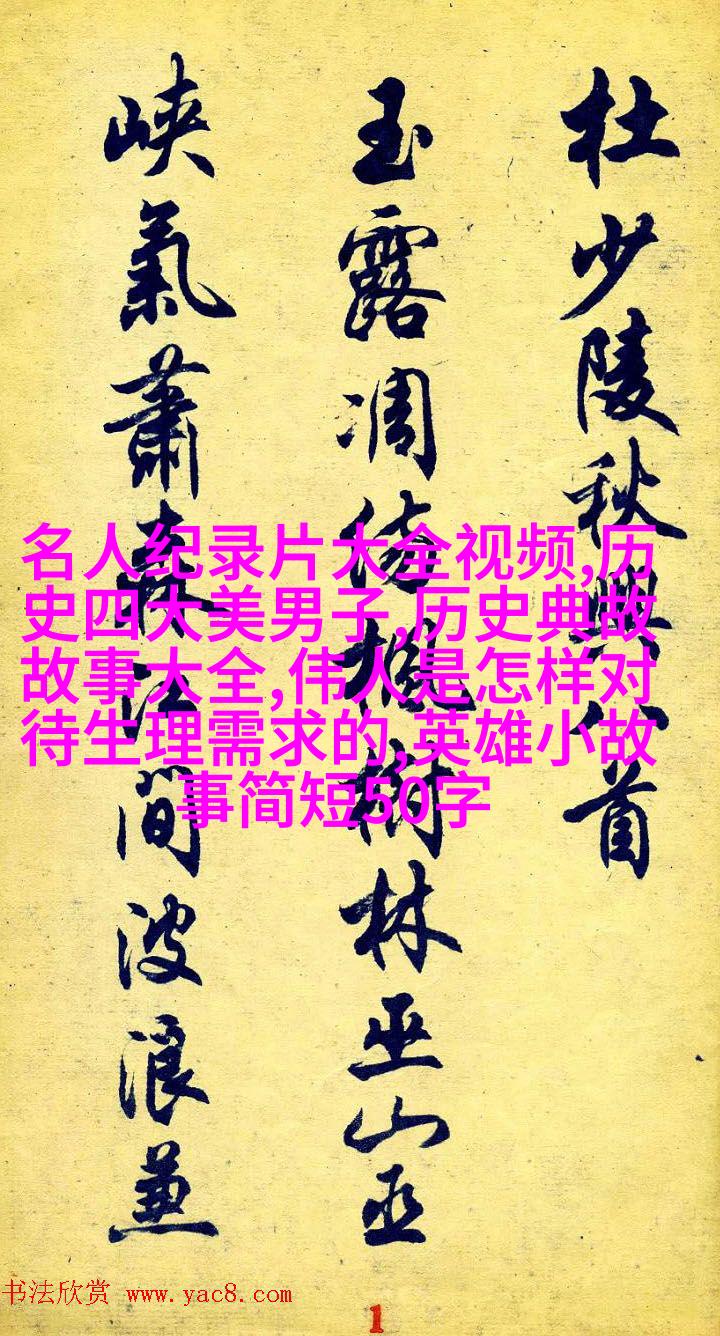 杜少陵秋興八首
玉露凋傷楓樹林巫山巫
峽氣蕭森江間波浪兼
名人纪录片大全视频,历
史四大美男子,历史典故
故事大全,伟人是怎样对
待生理需求的,英雄小故
事简短50字
书法欣赏 www.yac8.com
1